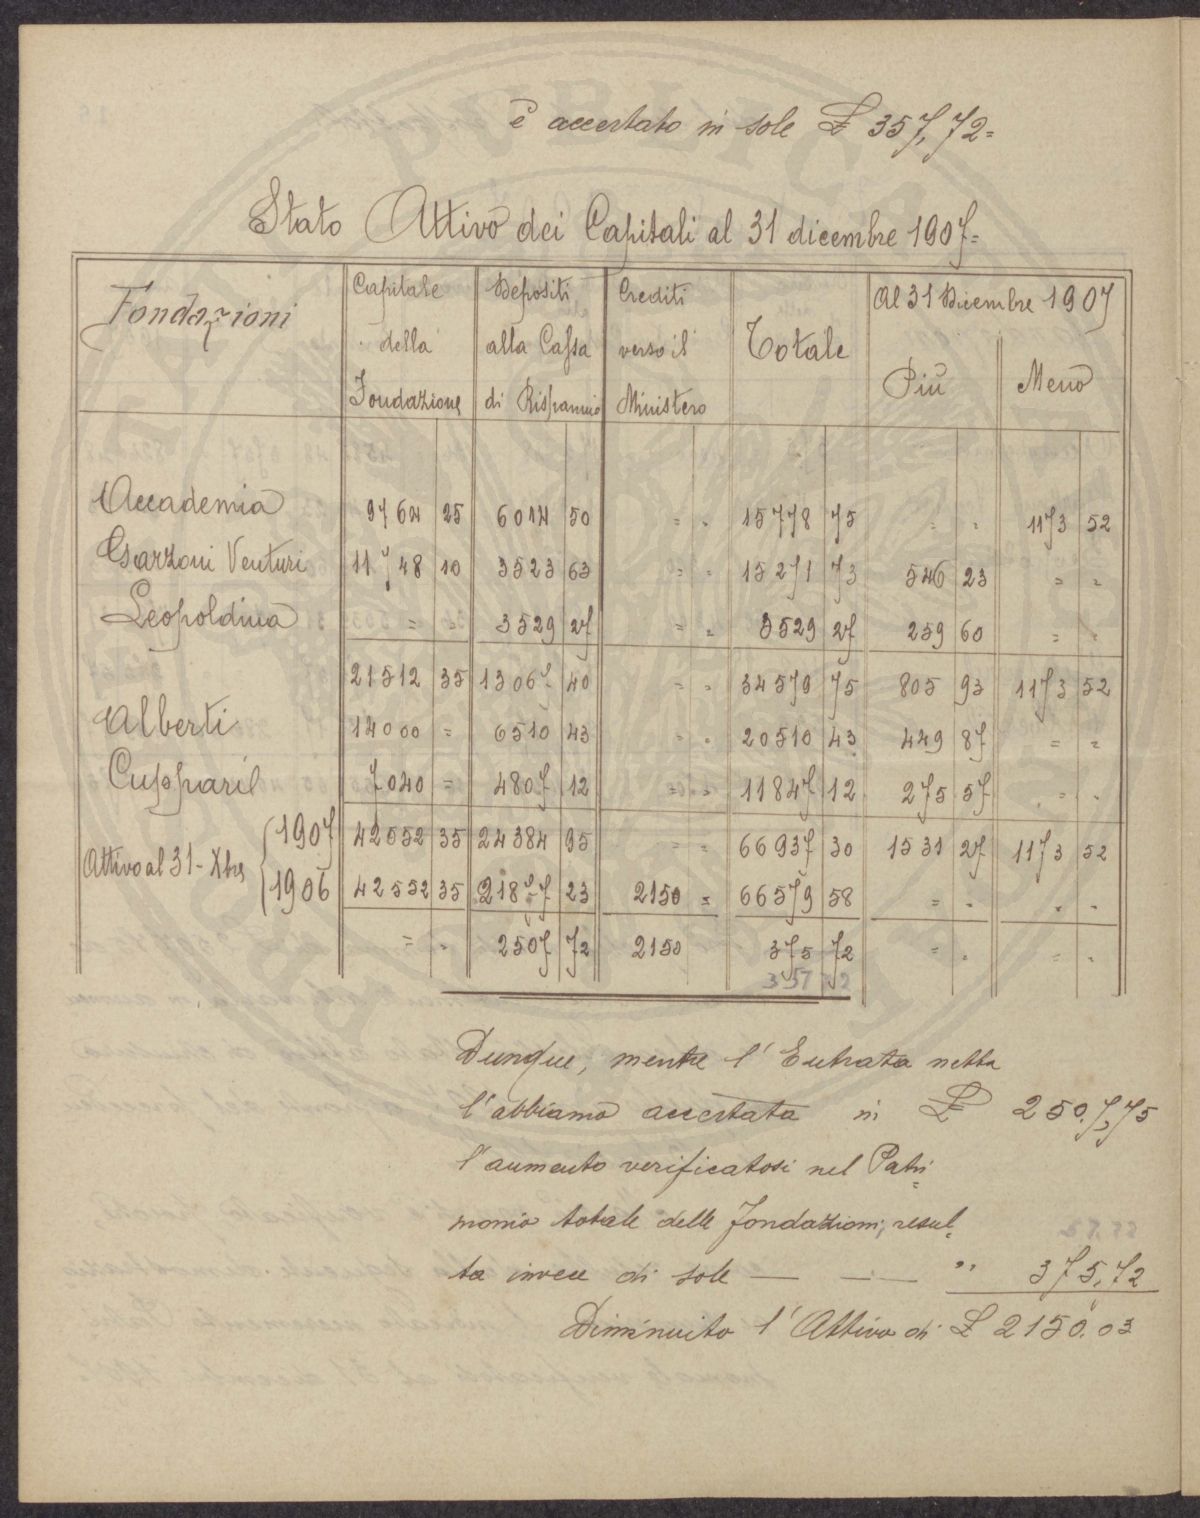 è accertato in sole £ 357,72=
Stato Attivo dei Capitali al 31 dicembre 1907=
Fondazioni | Capitale della Fondazione | Depositi alla Cassa di Risparmio | Crediti verso il Ministero | Totale | Al 31 Dicembre 1907 Più | Meno
Accademia | 9764 25 | 6014 50 | = = | 15778 75 | = = | 1173 52
Garzoni Venturi | 11748 10 | 3523 63 | = = | 15271 73 | 546 23 | = =
Leopoldina | = = | 3529 27 | = = | 3529 27 | 259 60 | = =
21512 35 | 13067 40 | = = | 34579 75 | 805 93 | 1173 52
Alberti | 14000 = | 6510 43 | = = | 20510 43 | 449 87 | = =
Cuppari | 7040 = | 4807 12 | = = | 11847 12 | 275 57 | = =
Attivo al 31- Xbre { 1907 | 42552 35 | 24384 95 | = = | 66937 30 | 1531 27 | 1173 52
1906 | 42552 35 | 21877 23 | 2150 = | 66579 58 | = = | = =
= = | 2507 72 | 2150 | 375 72 | = = | = =
357 72
Dunque, mentre l'Entrata netta
l'abbiamo accertata in £ 2507,75
l'aumento verificatosi nel Patri=
monio totale delle Fondazioni, resul=
ta invece di sole — — " 375,72
Diminuito l'Attivo di £ 2150.03